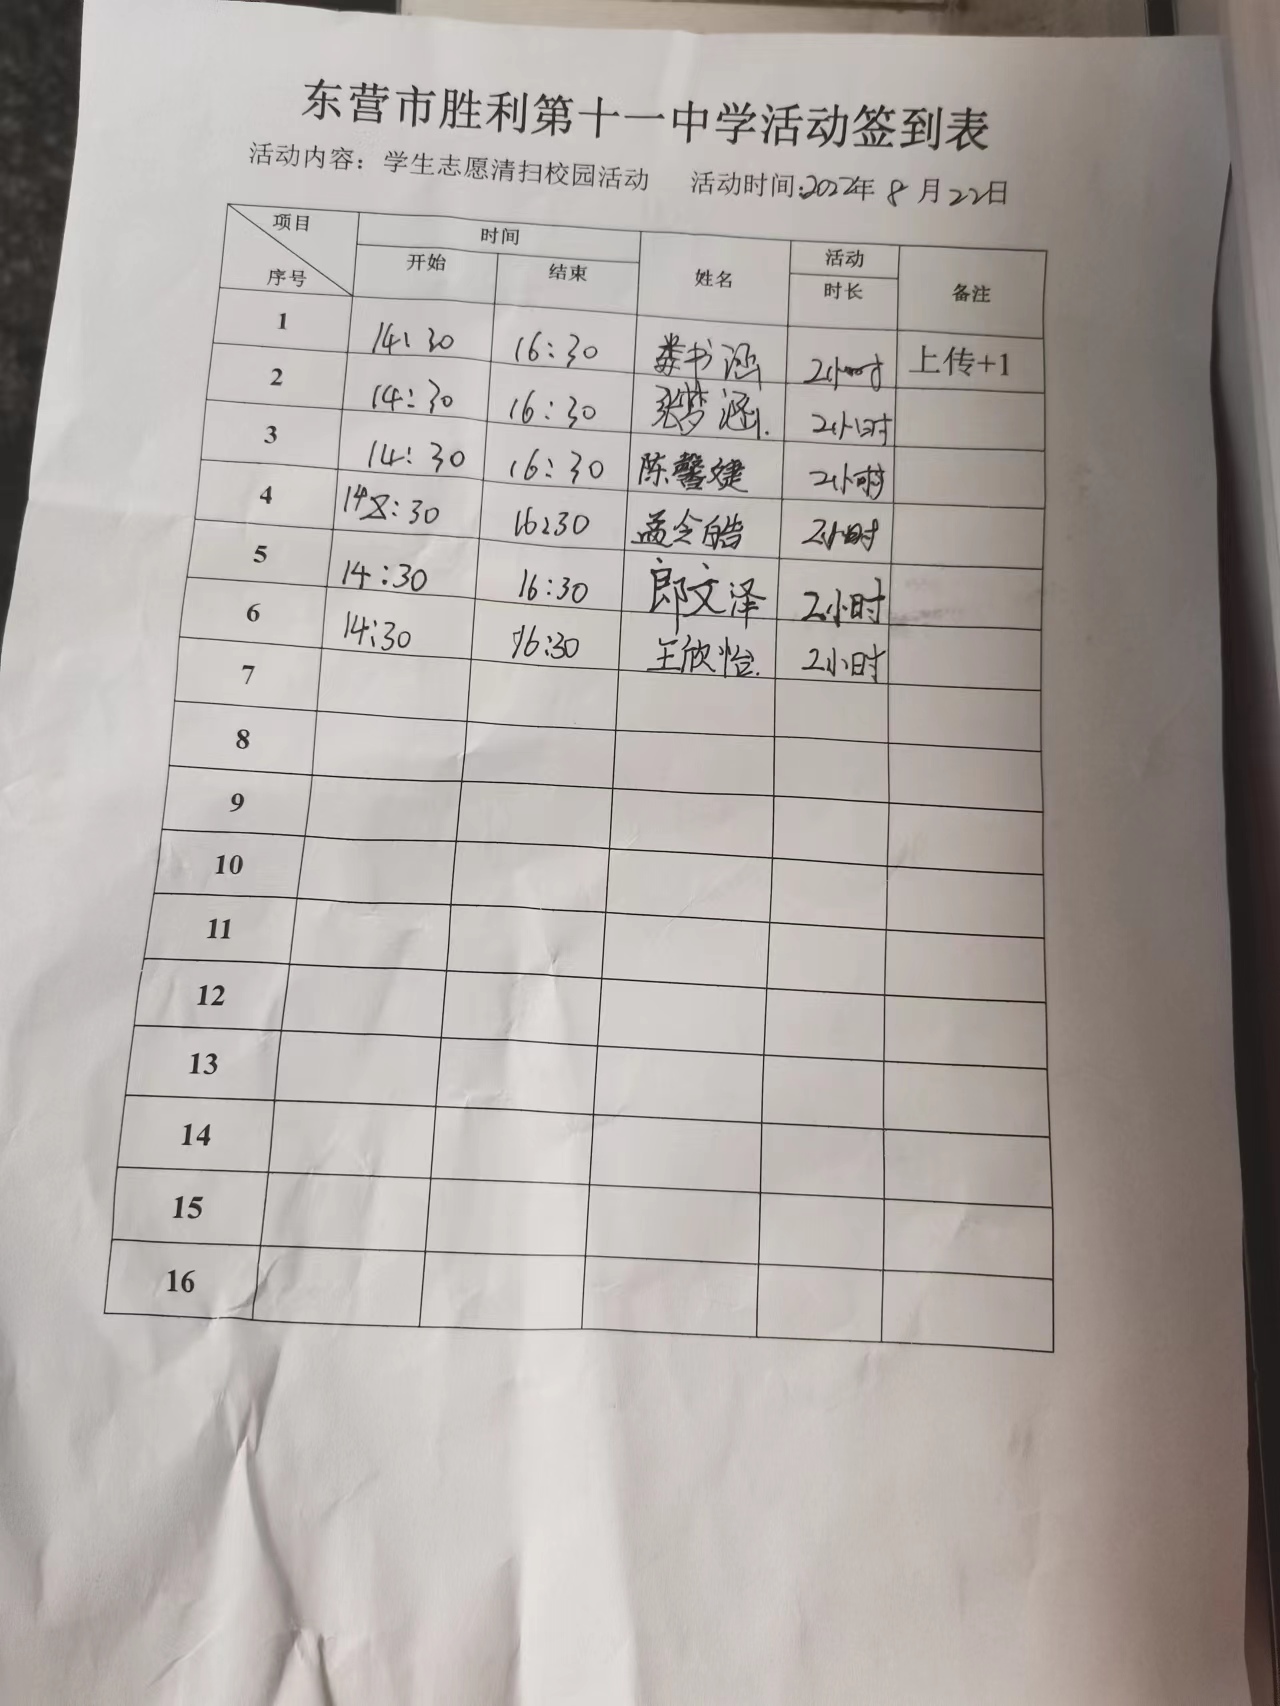 东营市胜利第十一中学活动签到表
活动内容：学生志愿清扫校园活动 活动时间:2022年8月22日
项目 时间 姓名 活动 备注
序号 开始 结束 时长
1 14:30 16:30 娄书涵 2小时 上传+1
2 14:30 16:30 张梦涵. 2小时
3 14:30 16:30 陈馨婕 2小时
4 14:30 16:30 孟令皓 2小时
5 14:30 16:30 郎文泽 2小时
6 14:30 16:30 王欣怡. 2小时
7
8
9
10
11
12
13
14
15
16